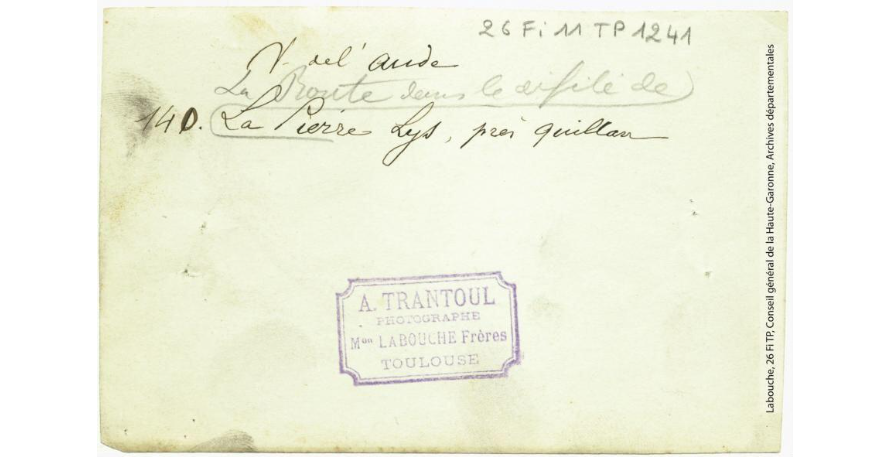 26 Fi 11 TP 1241
V. de l'aude
La Route dans le défilé de
140. La Pierre Lys, près quillan
A. TRANTOUL
PHOTOGRAPHE
Mon LABOUCHE Frères
TOULOUSE
Labouche, 26 Fi TP, Conseil général de la Haute-Garonne, Archives départementales